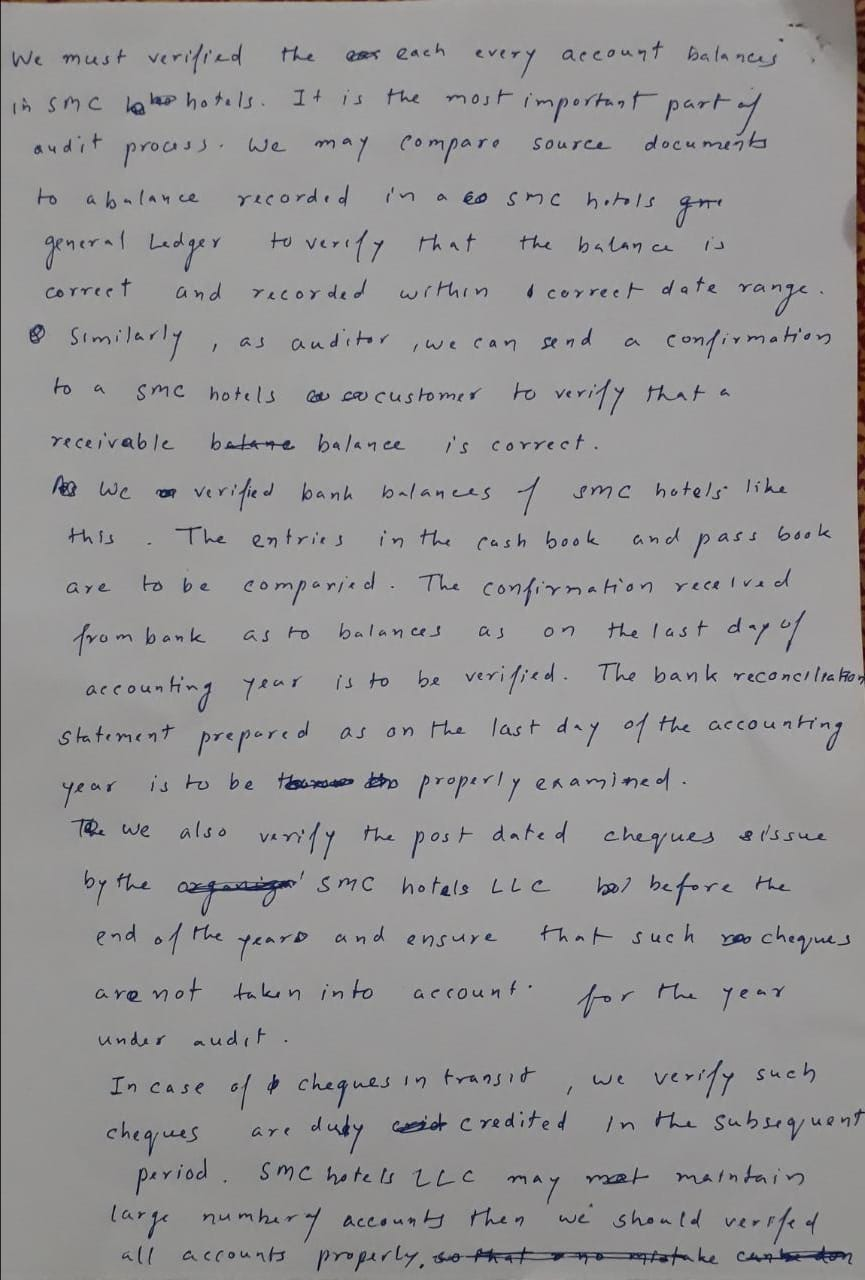 We must verified the each every account balances
in SMC hotels. It is the most important part of
audit process. We may compare source documents
to a balance recorded in a SMC hotels
general Ledger to verify that the balance is
correct and recorded within correct date range.
Similarly, as auditor, we can send a confirmation
to a SMC hotels customer to verify that a
receivable balance is correct.
We verified bank balances of SMC hotels like
this. The entries in the cash book and pass book
are to be comparied. The confirmation received
from bank as to balances as on the last day of
accounting year is to be verified. The bank reconciliation
statement prepared as on the last day of the accounting
year is to be properly examined.
we also verify the post dated cheques issue
by the SMC hotels LLC before the
end of the years and ensure that such cheques
are not taken into account. for the year
under audit.
In case of cheques in transit, we verify such
cheques are duly credited in the subsequent
period. SMC hotels LLC may maintain
large number of accounts then we should verified
all accounts properly, so that no mistake can be don